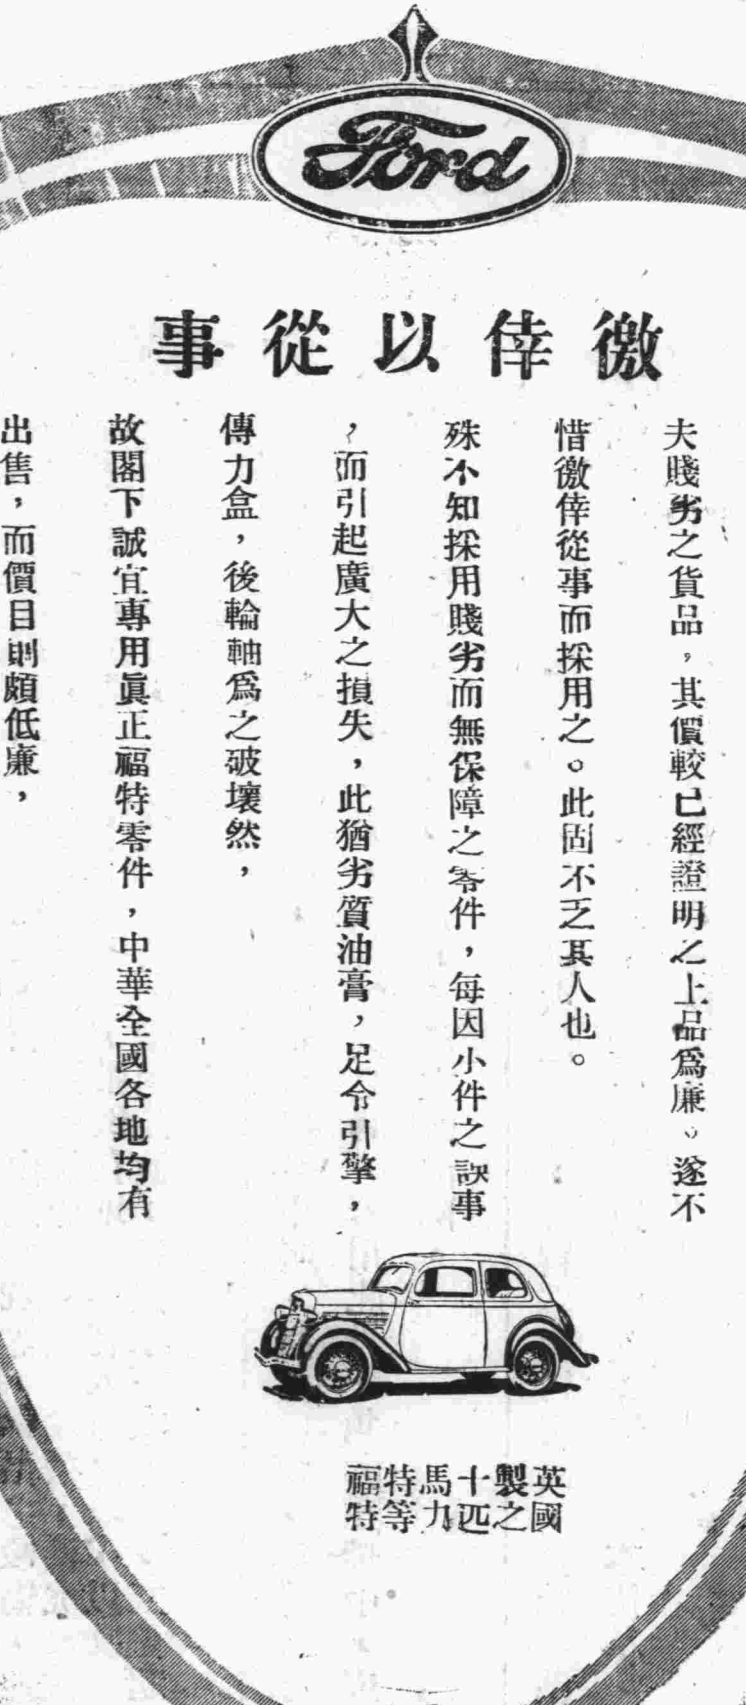 Ford
徼倖以從事
夫賤劣之貨品，其價較已經證明之上品爲廉。遂不
惜徼倖從事而採用之。此固不乏其人也。
殊不知採用賤劣而無保障之零件，每因小件之誤事
，而引起廣大之損失，此猶劣質油膏，足令引擎，
傳力盒，後輪軸爲之破壞然，
故閣下誠宜專用眞正福特零件，中華全國各地均有
出售，而價目則頗低廉，
英國
製之
十匹
馬力
特等
福特